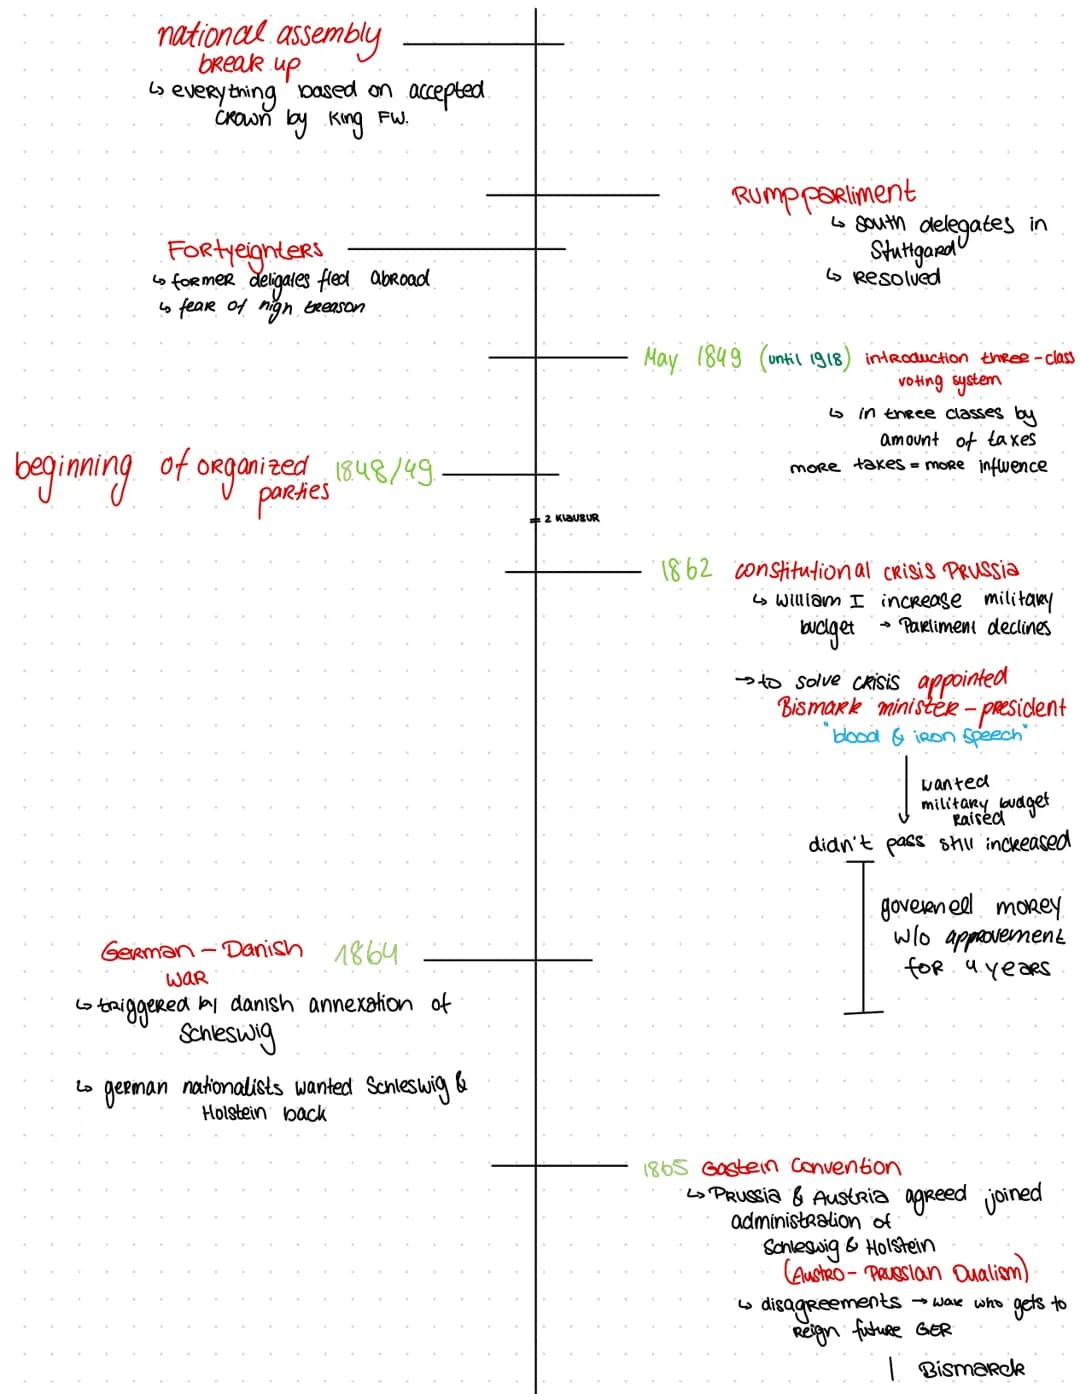 national assembly
break up
↳ everything based on accepted
crown by King FW.
Rumpparliment
↳ south delegates in
Stuttgard
↳ resolved
Fortyeighters
↳ former deligates fled abroad
↳ fear of high treason
May 1849 (until 1918) introduction three-class
voting system
↳ in three classes by
amount of taxes
more taxes = more influence
beginning of organized 1848/49
parties
= 2 Klausur
1862 constitutional crisis Prussia
↳ William I increase military
budget → Parliment declines
→ to solve crisis appointed
Bismark minister-president
"blood & iron speech"
wanted
military budget
raised
didn't pass still increased
governed morey
w/o approvement
for 4 years
German-Danish 1864
war
↳ triggered by danish annexation of
Schleswig
↳ german nationalists wanted Schleswig &
Holstein back
1865 Gastein Convention
↳ Prussia & Austria agreed joined
administration of
Schleswig & Holstein
(Austro-Prussian Dualism)
↳ disagreements → war who gets to
reign future GER
| Bismarck